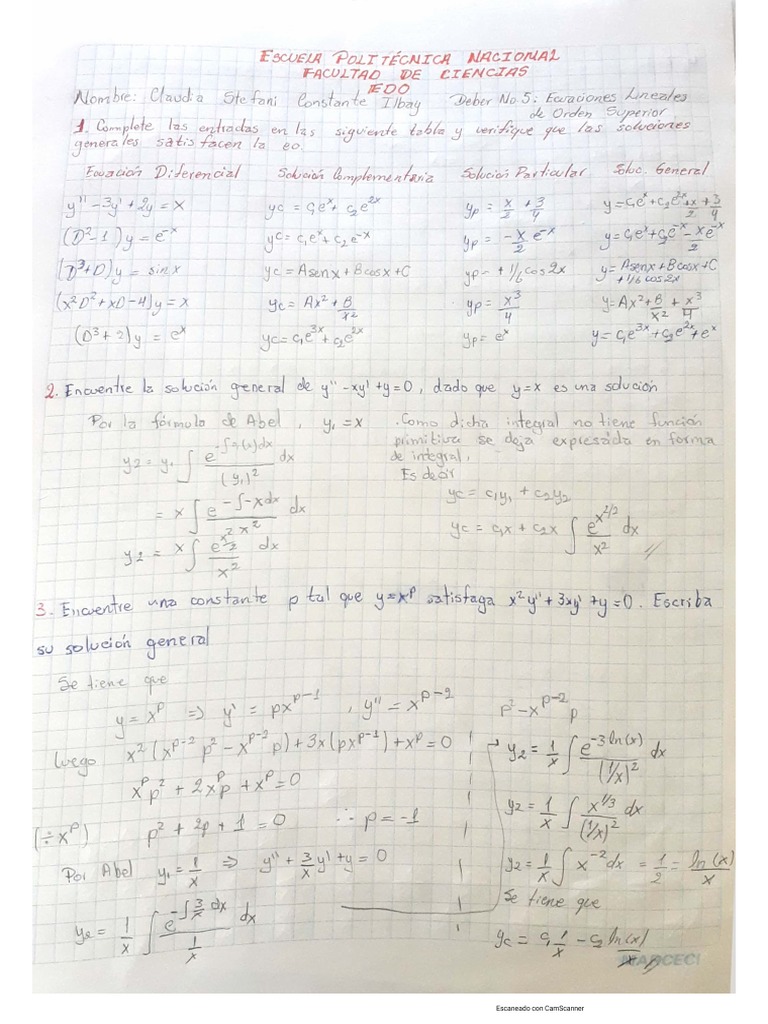 ESCUELA POLITÉCNICA NACIONAL
FACULTAD DE CIENCIAS
EDO
Nombre: Claudia Stefani Constante Ilbay Deber No 5: Ecuaciones Lineales de Orden Superior
1. Complete las entradas en las siguiente tabla y verifique que las soluciones
generales satisfacen la eo.
Ecuación Diferencial Solución Complementaria Solución Particular Soluc. General
y'' - 3y' + 2y = x yc = c₁eˣ + c₂e²ˣ yp = x/2 + 3/4 y = c₁eˣ + c₂e²ˣ + x/2 + 3/4
(D² - 1)y = e⁻ˣ yc = c₁eˣ + c₂e⁻ˣ yp = -x/2 e⁻ˣ y = c₁eˣ + c₂e⁻ˣ - xe⁻ˣ/2
(D³ + D)y = sin x yc = A sen x + B cos x + C yp = + 1/6 cos 2x y = A sen x + B cos x + C + 1/6 cos 2x
(x²D² + xD - 4)y = x yc = Ax² + B/x² yp = x³/4 y = Ax² + B/x² + x³/4
(D³ + 2)y = eˣ yc = c₁e³ˣ + c₂e²ˣ yp = eˣ y = c₁e³ˣ + c₂e²ˣ + eˣ
2. Encuentre la solución general de y'' - xy' + y = 0, dado que y = x es una solución
Por la fórmula de Abel, y₁ = x
y₂ = y₁ ∫ e^(-∫ (x)dx) / (y₁)² dx
= x ∫ e^(-∫-x dx) / x² dx
y₂ = x ∫ e^(x²/2) / x² dx
. Como dicha integral no tiene función
primitiva se deja expresada en forma
de integral.
Es decir
yc = c₁y₁ + c₂y₂
yc = c₁x + c₂x ∫ e^(x²/2) / x² dx //
3. Encuentre una constante p tal que y = xᵖ satisfaga x²y'' + 3xy' + y = 0. Escriba
su solución general
Se tiene que
y = xᵖ ⇒ y' = pxᵖ⁻¹, y'' = xᵖ⁻² p² - xᵖ⁻² p
luego x²(xᵖ⁻² p² - xᵖ⁻² p) + 3x(pxᵖ⁻¹) + xᵖ = 0
xᵖp² + 2xᵖp + xᵖ = 0
(÷xᵖ) p² + 2p + 1 = 0 ∴ p = -1
Por Abel y₁ = 1/x ⇒ y'' + 3/x y' + y = 0
y₂ = 1/x ∫ e^(-∫ 3/x dx) / (1/x) dx
y₂ = 1/x ∫ e^(-3 ln(x)) / (1/x)² dx
y₂ = 1/x ∫ x^(1/3) / (1/x)² dx
y₂ = 1/x ∫ x⁻² dx = 1/2 = ln(x)/x
Se tiene que
yc = c₁ 1/x - c₂ ln(x)/x //
Escaneado con CamScanner